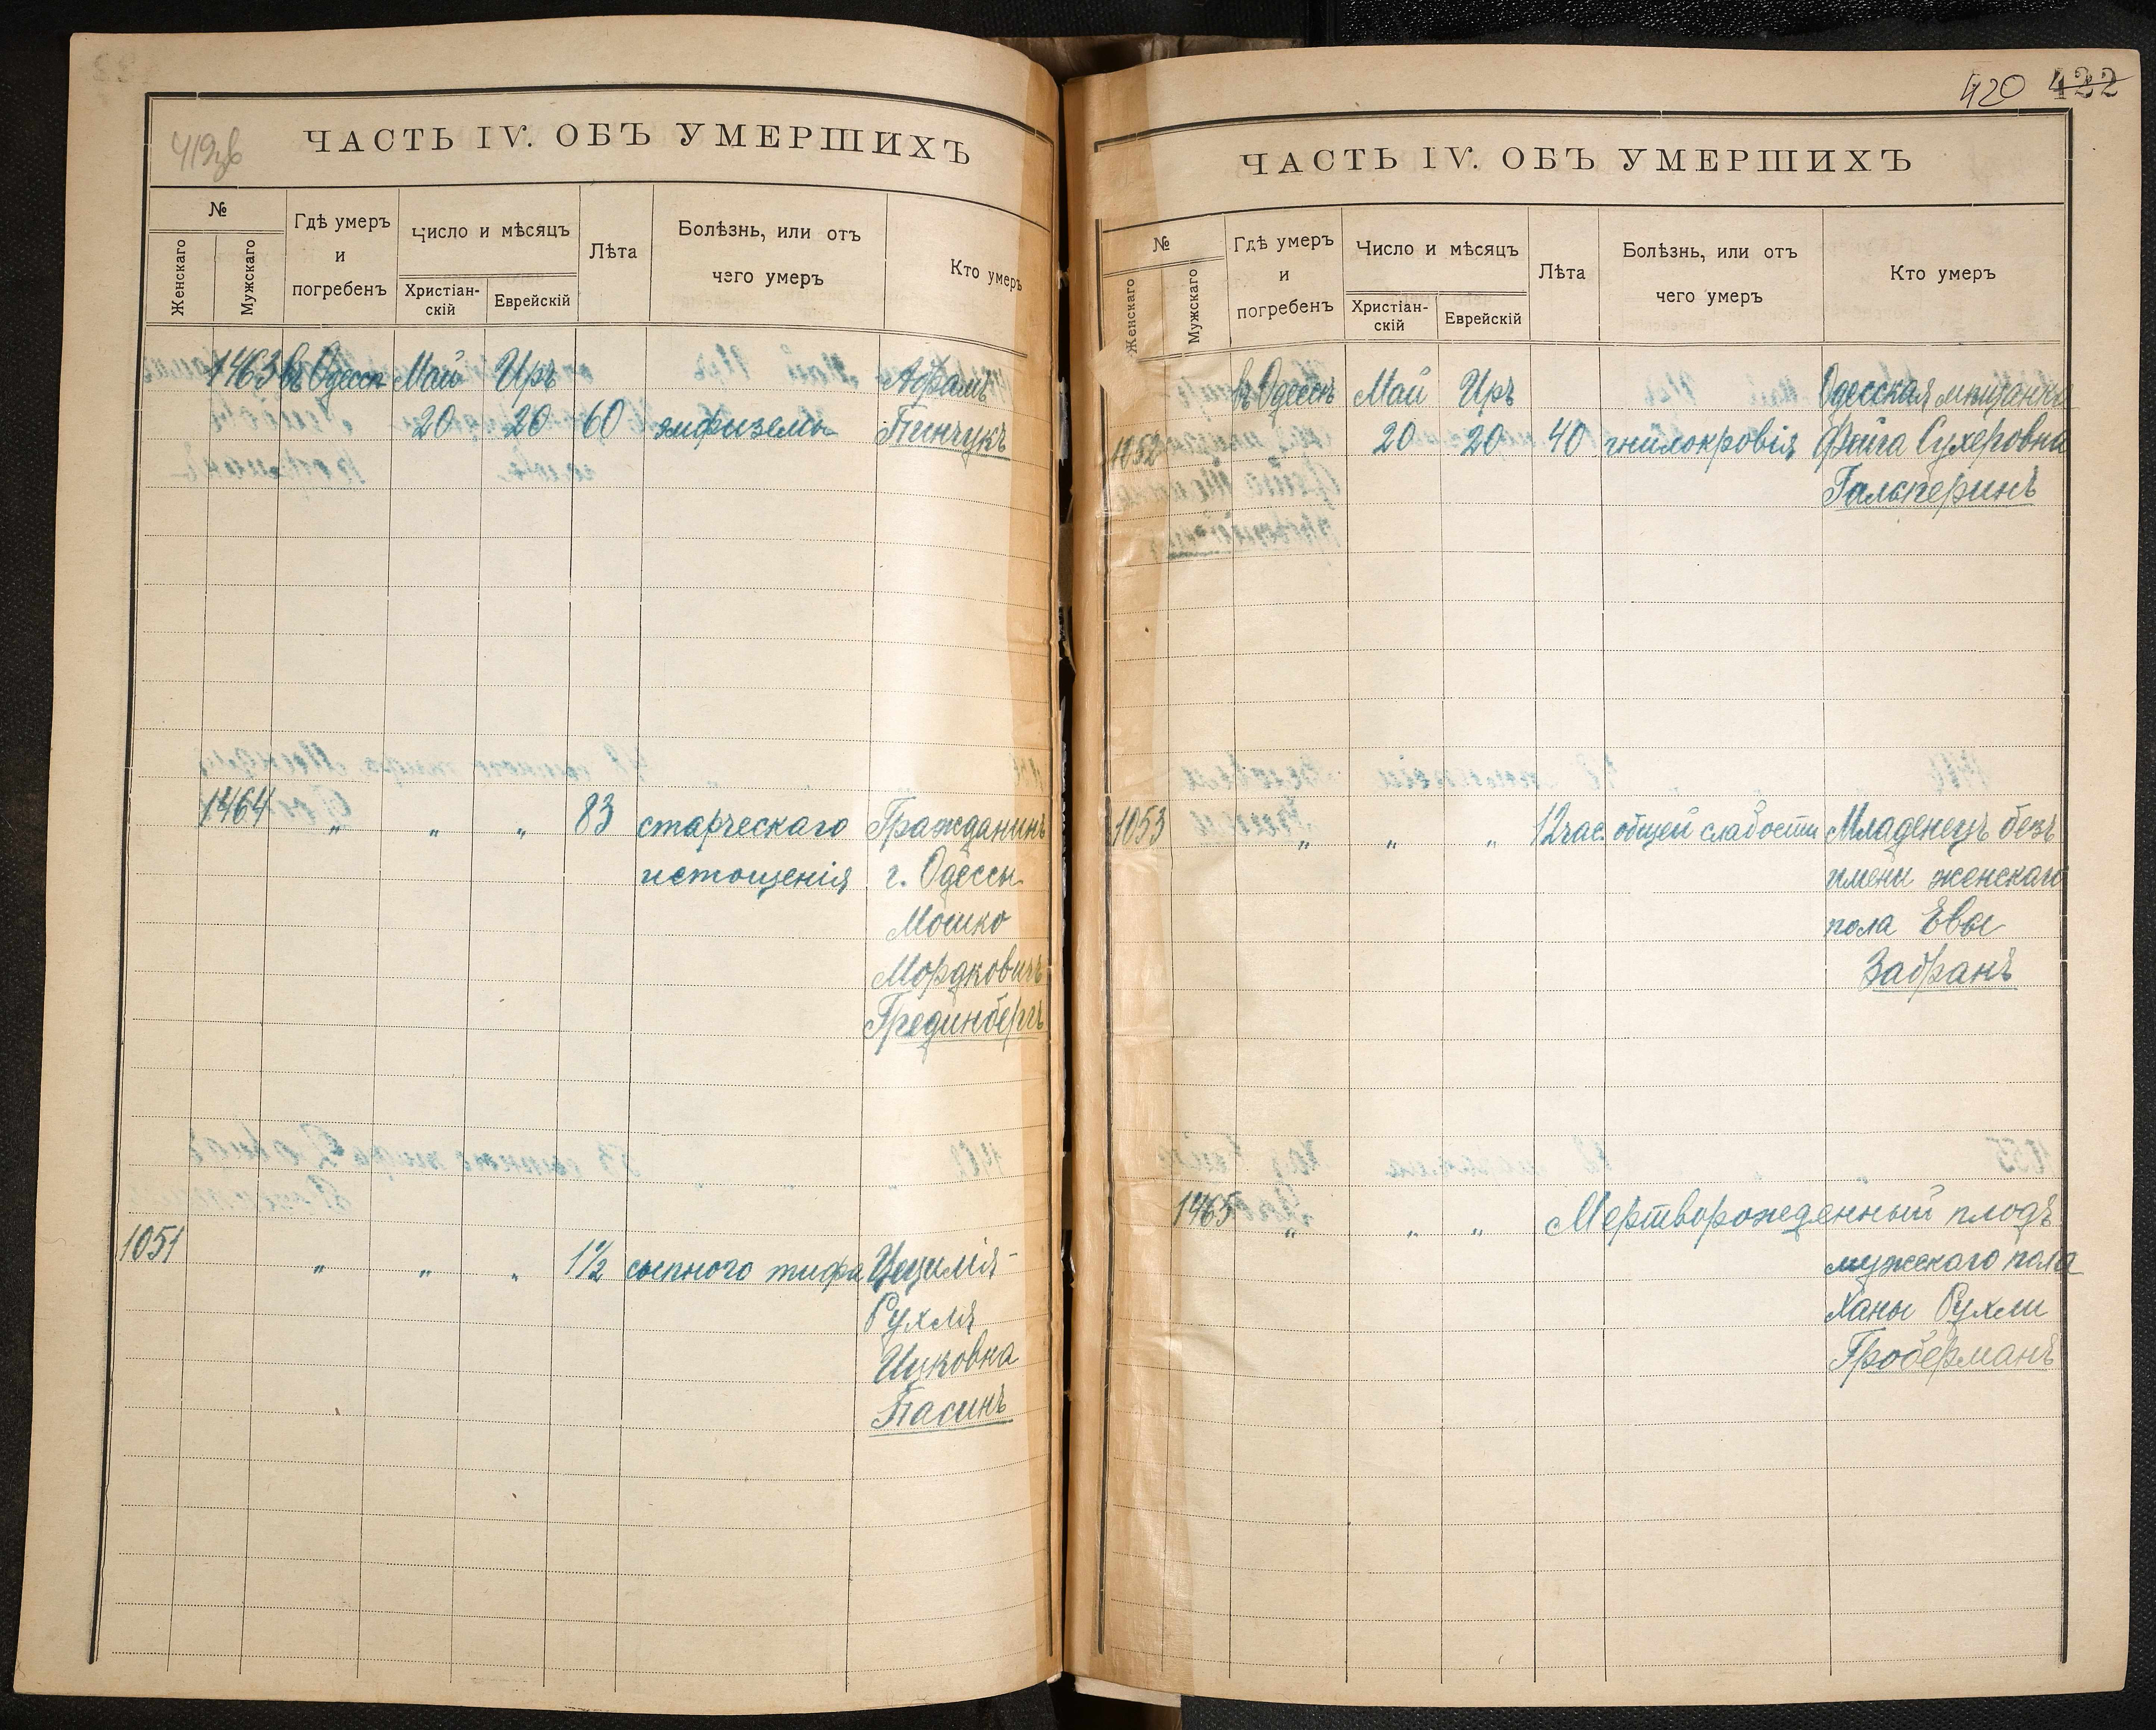 419зв
ЧАСТЬ IV. ОБЪ УМЕРШИХЪ
№
Женскаго
Мужскаго
Гдѣ умеръ
и
погребенъ
Число и мѣсяцъ
Христіан-
скій
Еврейскій
Лѣта
Болѣзнь, или отъ
чего умеръ
Кто умеръ
1463 въ Одессѣ Май Иръ Абрамъ
20 20 60 эмфиземы Пинчукъ
1464 „ „ „ 83 старческаго Гражданинъ
истощенія г. Одессы
Мошко
Мордковичъ
Грединбергъ
1051 „ „ „ 1½ сыпного тифа Цецилія-
Рухля
Ицковна
Пасинъ
420 422
ЧАСТЬ IV. ОБЪ УМЕРШИХЪ
№
Женскаго
Мужскаго
Гдѣ умеръ
и
погребенъ
Число и мѣсяцъ
Христіан-
скій
Еврейскій
Лѣта
Болѣзнь, или отъ
чего умеръ
Кто умеръ
въ Одессѣ Май Иръ Одесская мѣщанка
1052 20 20 40 гнилокровія Фейга Сухеровна
Гальперинъ
1053 „ „ „ 12 час. общей слабости Младенецъ безъ
имени женскаго
пола Евы
Забранъ
1465 „ „ „ Мертворожденный плодъ
мужскаго пола
Ханы Рухли
Гроберманъ